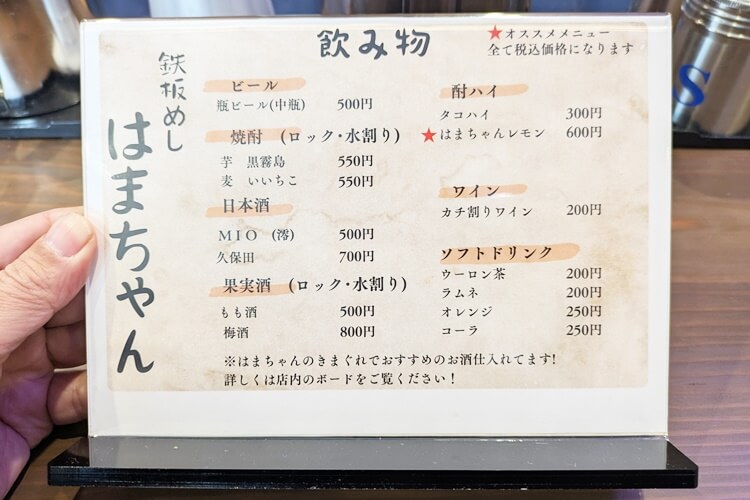 飲み物
★オススメメニュー
全て税込価格になります
鉄板めし
はまちゃん
ビール
瓶ビール(中瓶) 500円
焼酎 (ロック・水割り)
芋 黒霧島 550円
麦 いいちこ 550円
日本酒
MIO (澪) 500円
久保田 700円
果実酒 (ロック・水割り)
もも酒 500円
梅酒 800円
酎ハイ
タコハイ 300円
★はまちゃんレモン 600円
ワイン
カチ割りワイン 200円
ソフトドリンク
ウーロン茶 200円
ラムネ 200円
オレンジ 250円
コーラ 250円
※はまちゃんのきまぐれでおすすめのお酒仕入れてます!
詳しくは店内のボードをご覧ください!
S